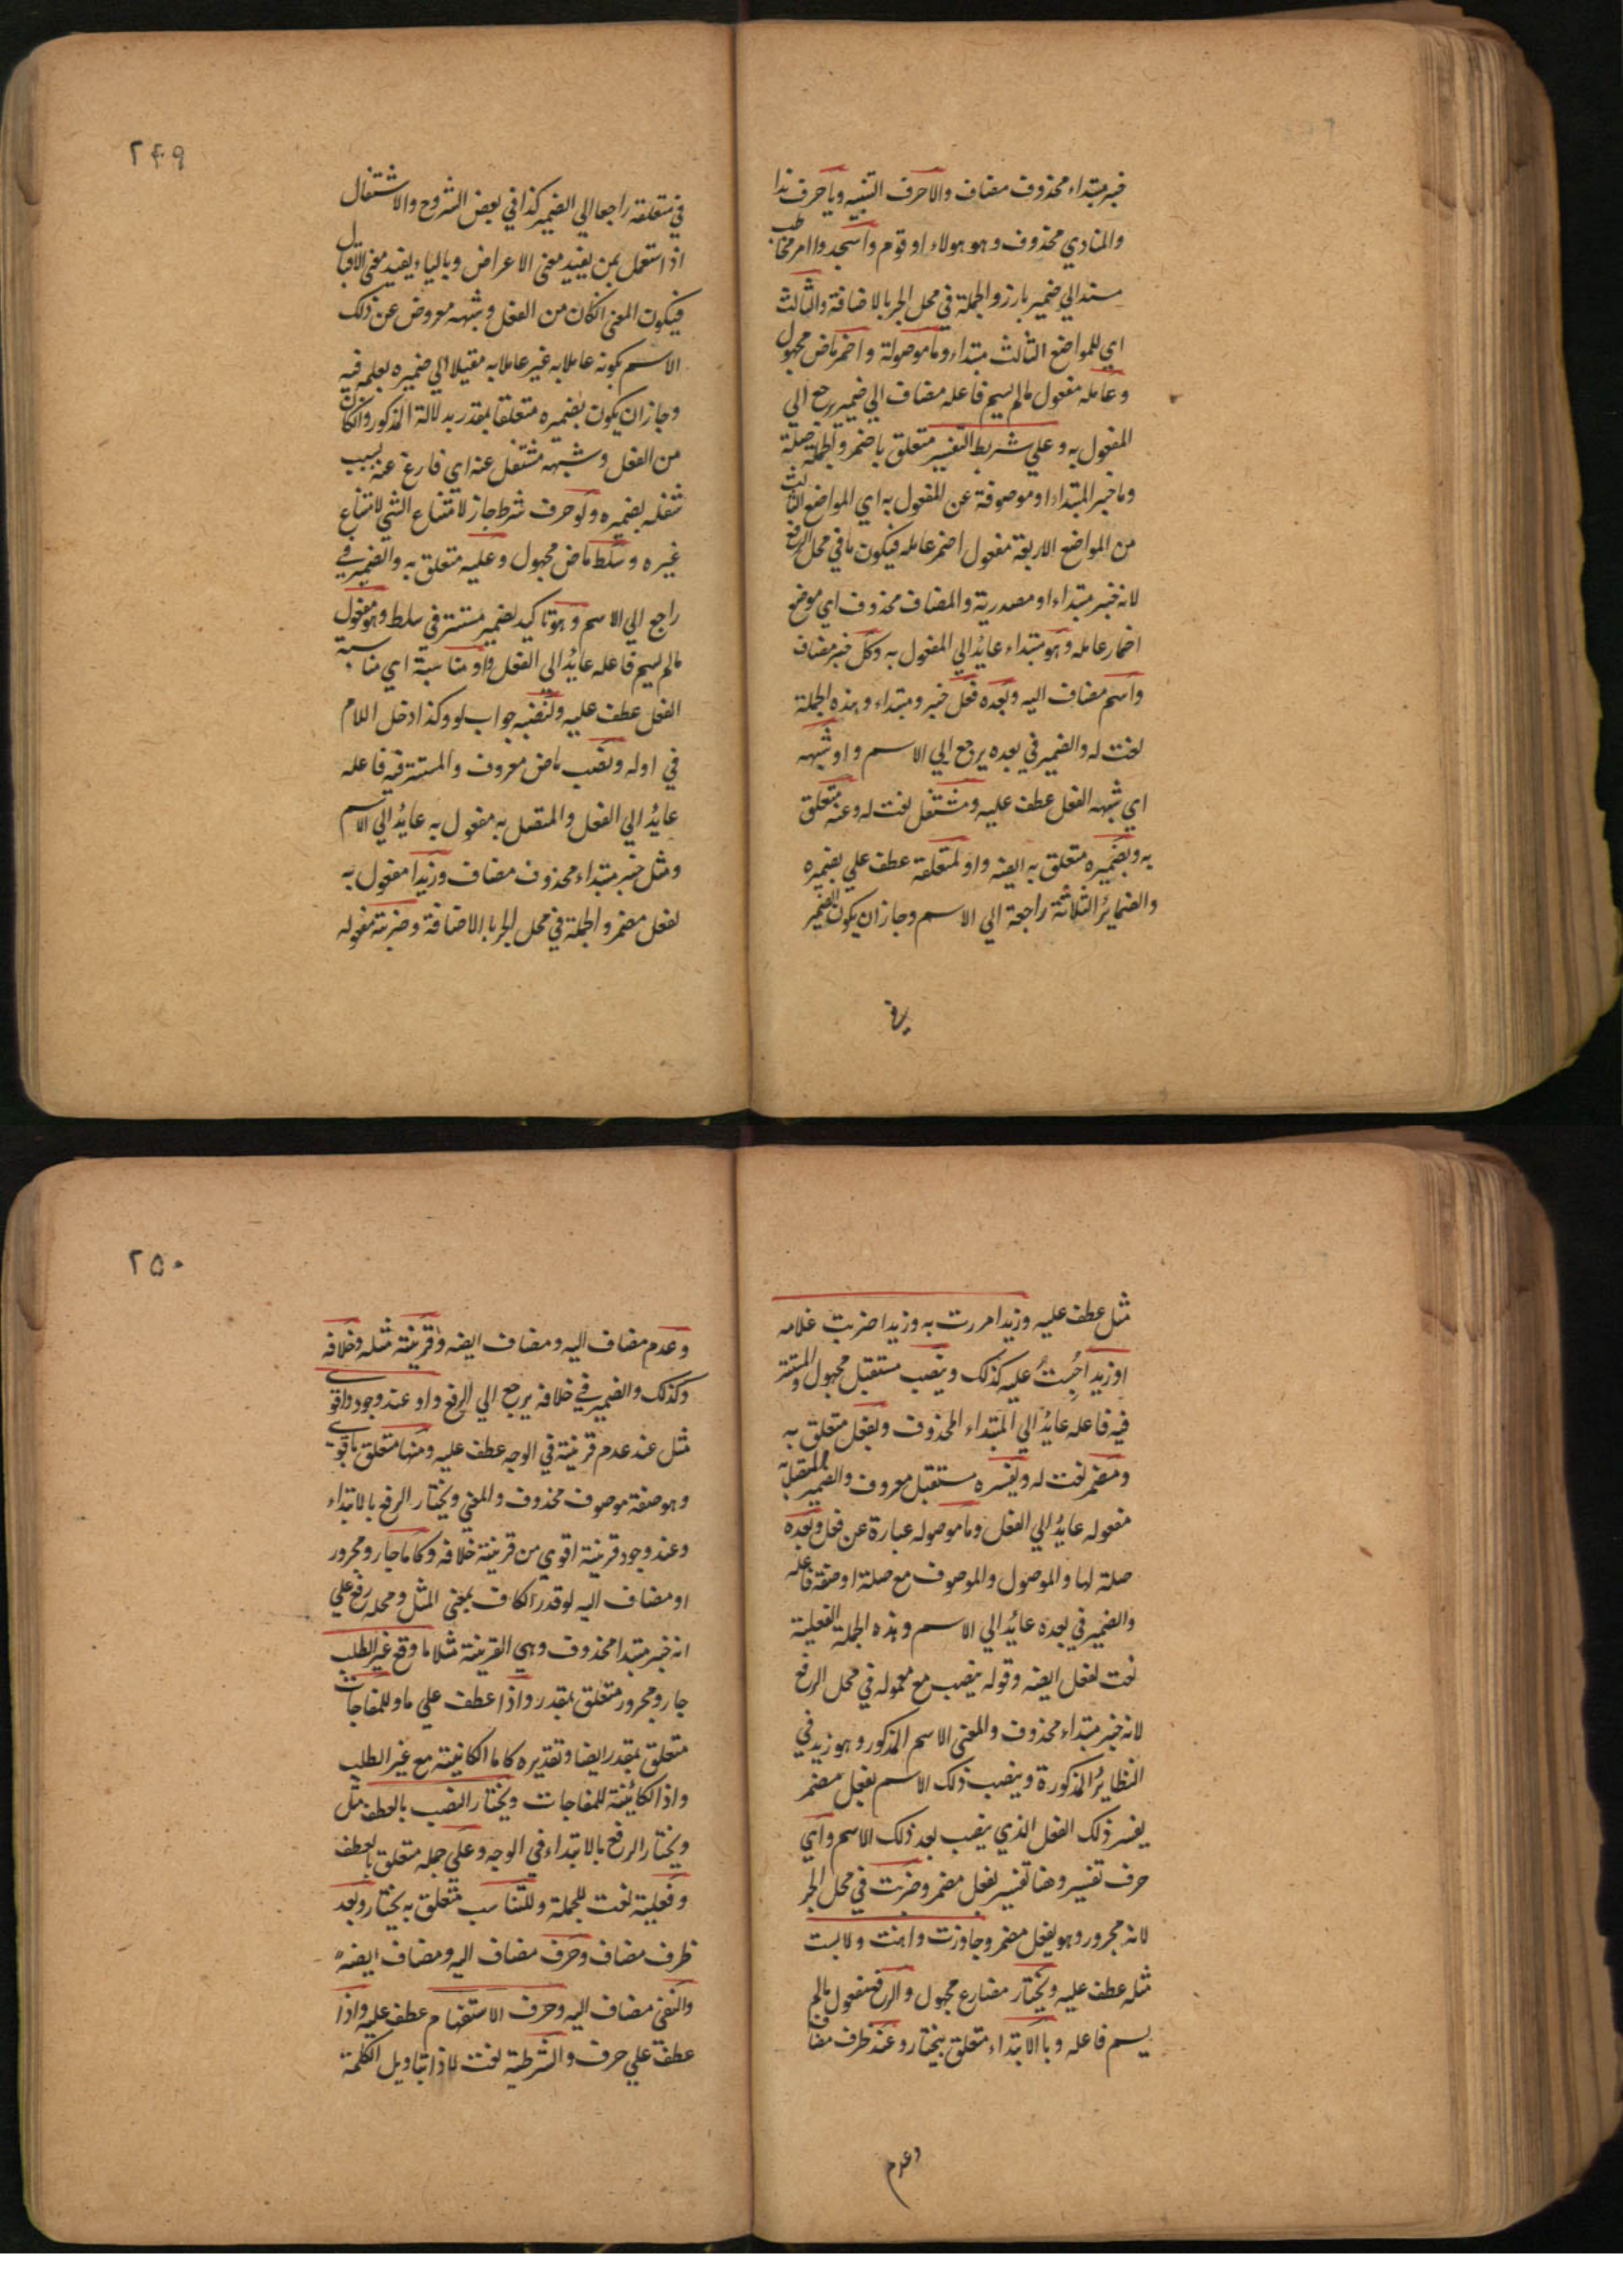 خبر مبتداء محذوف مضاف والا حرف التنبيه ويا حرف ندا
والمنادي محذوف وهو هولاء او قوم واسجدوا امر مخاطب
مسند الي ضمير بارز والجملة في محل الجر بالاضافة والثالث
اي للمواضع الثالث مبتداء وما موصولة واضمر ماض مجهول
وعامله مفعول مالم يسم فاعله مضاف الي ضمير رجع الي
المفعول به وعلي شريط التفسير متعلق باضمر والجملة صلة
وما خبر المبتداء او موصوفة عن المفعول به اي المواضع الثالث
من المواضع الاربعة مفعول اضمر عامله فيكون ما في محل الرفع
لانه خبر مبتداء او مصدرية والمضاف محذوف اي موضع
اضمار عامله وهو مبتداء عايدُ الي المفعول به وكل خبر مضاف
واسم مضاف اليه وبعده فعل خبر ومبتداء وهذه الجملة
نعت له والضمير في بعده يرجع الي الاسم واو شبهه
اي شبهه الفعل عطف عليه ومشتغل نعت له وعنه متعلق
به وبضميره متعلق به ايضه واو لمتعلقه عطف علي بضميره
والضمايرُ الثلاثة راجعة الي الاسم وجاز ان يكون الضمير
في
۲۴۹
في متعلقه راجعا الي الضمير كذا في بعض الشروح والاشتغال
اذا استعمل بمن يفيد معني الاعراض وبالباء يفيد معني الاقبال
فيكون المعني الكان من الفعل وشبهه معروض عن ذلك
الاسم بكونه عاملا به غير عاملا به مقبلا الي ضميره بعلمه فيه
وجاز ان يكون بضميره متعلقا بمقدر بدلالة المذكور والكان
من الفعل وشبهه مشتغل عنه اي فارغ عنه بسبب
شغله بضميره ولو حرف شرط جاز لامتناع الشي لامتناع
غيره وسلط ماض مجهول وعليه متعلق به والضمير في
راجع الي الاسم وهو تاكيد لضمير مستتر في سلط وهو مفعول
مالم يسم فاعله عايدُ الي الفعل واو مناسبة اي مناسبة
الفعل عطف عليه ولنصبه جواب لو وكذا دخل اللام
في اوله ونصب ماض معروف والمستتر فيه فاعله
عايدُ الي الفعل والمتصل به مفعول به عايدُ الي الاسم
ومثل خبر مبتداء محذوف مضاف وزيدا مفعول به
لفعل مضمر والجملة في محل الجر باالاضافة وضربته مفعوله
مثل عطف عليه وزيدا مررت به وزيدا ضربت غلامه
او زيدا حُبِستُ عليه كذلك وينصب مستقبل مجهول والمستتر
فيه فاعله عايدُ الي المبتداء المحذوف وبفعل متعلق به
ومضمر نعت له ويفسره مستقبل معروف والضمير المتصل به
مفعوله عايدُ الي الفعل وما موصوله عبارة عن فعل وبعده
صلة لها والموصول والموصوف مع صلة او صفة فاعله
والضمير في بعده عائدُ الي الاسم وهذه الجملة الفعلية
نعت لفعل ايضه وقوله ينصب مع معموله في محل الرفع
لانه خبر مبتداء محذوف والمعني الاسم المذكور وهو زيد في
النظايرُ المذكورة وينصب ذلك الاسم بفعل مضمر
يفسر ذلك الفعل الذي ينصب بعد ذلك الاسم واي
حرف تفسير وهنا تفسير بفعل مضمر وضربت في محل الجر
لانه مجرور وهو بفعل مضمر وجاوزت واهنت ولابست
مثله عطف عليه ويختار مضارع مجهول والرفع مفعول مالم
يسم فاعله وباالابتداء متعلق بيختار وعند ظرف مضاف
وعدم
۲۵۰
وعدم مضاف اليه ومضاف ايضه وقرينة مثله وخلافه
وكذلك والضمير في خلافه يرجع الي الرفع واو عند وجود واقوي
مثل عند عدم قرينة في الوجه عطف عليه ومنها متعلق باقوي
وهو صفة موصوف محذوف والمعني ويختار الرفع بالابتداء
وعند وجود قرينة اقوي من قرينة خلافه وكاما جار ومجرور
او مضاف اليه لو قدر الكاف بمعني المثل ومحله رفع علي
انه خبر مبتدا محذوف وهي القرينة مثلا ما وقع غير الطلب
جار ومجرور متعلق بمقدر واذا عطف علي ما وللمفاجات
متعلق بمقدر ايضا وتقديره كاما الكانية مع غير الطلب
واذا الكائنة للمفاجات ويختار النصب بالعطف مثل
ويختار الرفع بالابتداء في الوجه وعلي جمله متعلق بالعطف
وفعلية نعت للجملة وللتناسب متعلق به يختار وبعد
ظرف مضاف وحرف مضاف اليه ومضاف ايضه
والنفي مضاف اليه وحرف الاستفهام عطف عليه واذا
عطف علي حرف والشرطية نعت لاذا بتاويل الكلمة